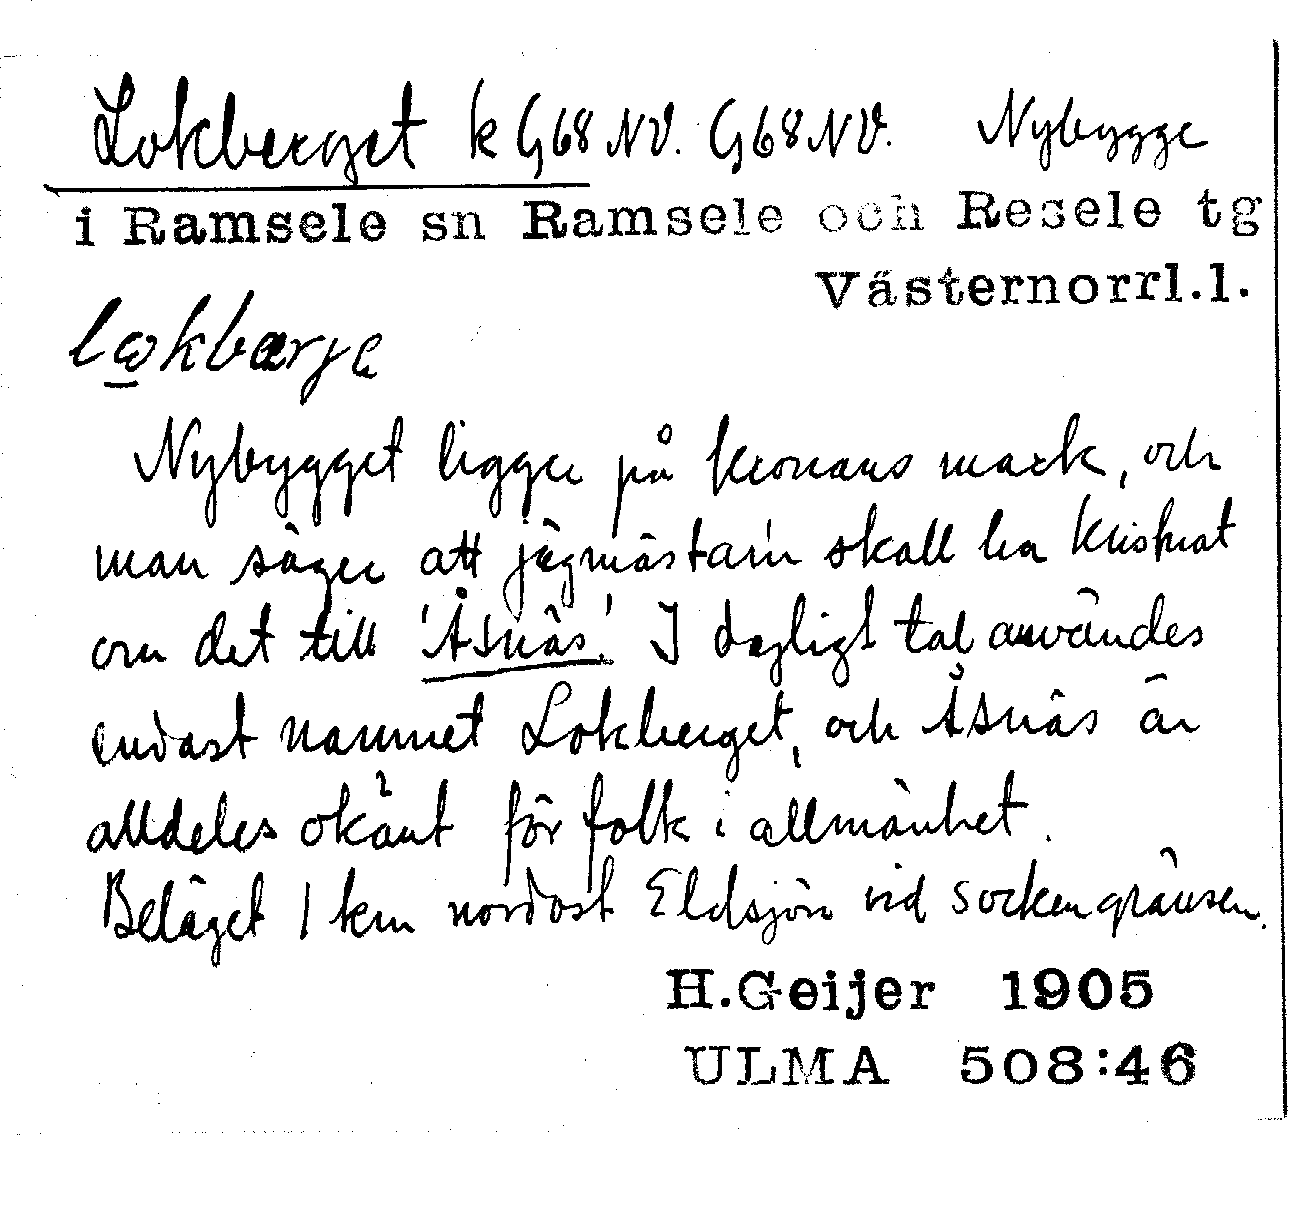 Lokberget k G68 NV. G68 NV. Nybygge
i Ramsele sn Ramsele och Resele tg
Västernorrl.l.
Nybygget ligger på kronans mark, och
man säger att jägmästarn skall ha kristnat
om det till 'Åsnäs'. I dagligt tal användes
endast namnet Lokberget, och Åsnäs är
alldeles okänt för folk i allmänhet.
Beläget 1 km nordost Eldsjön vid sockengränsen.
H.Geijer 1905
ULMA 508:46